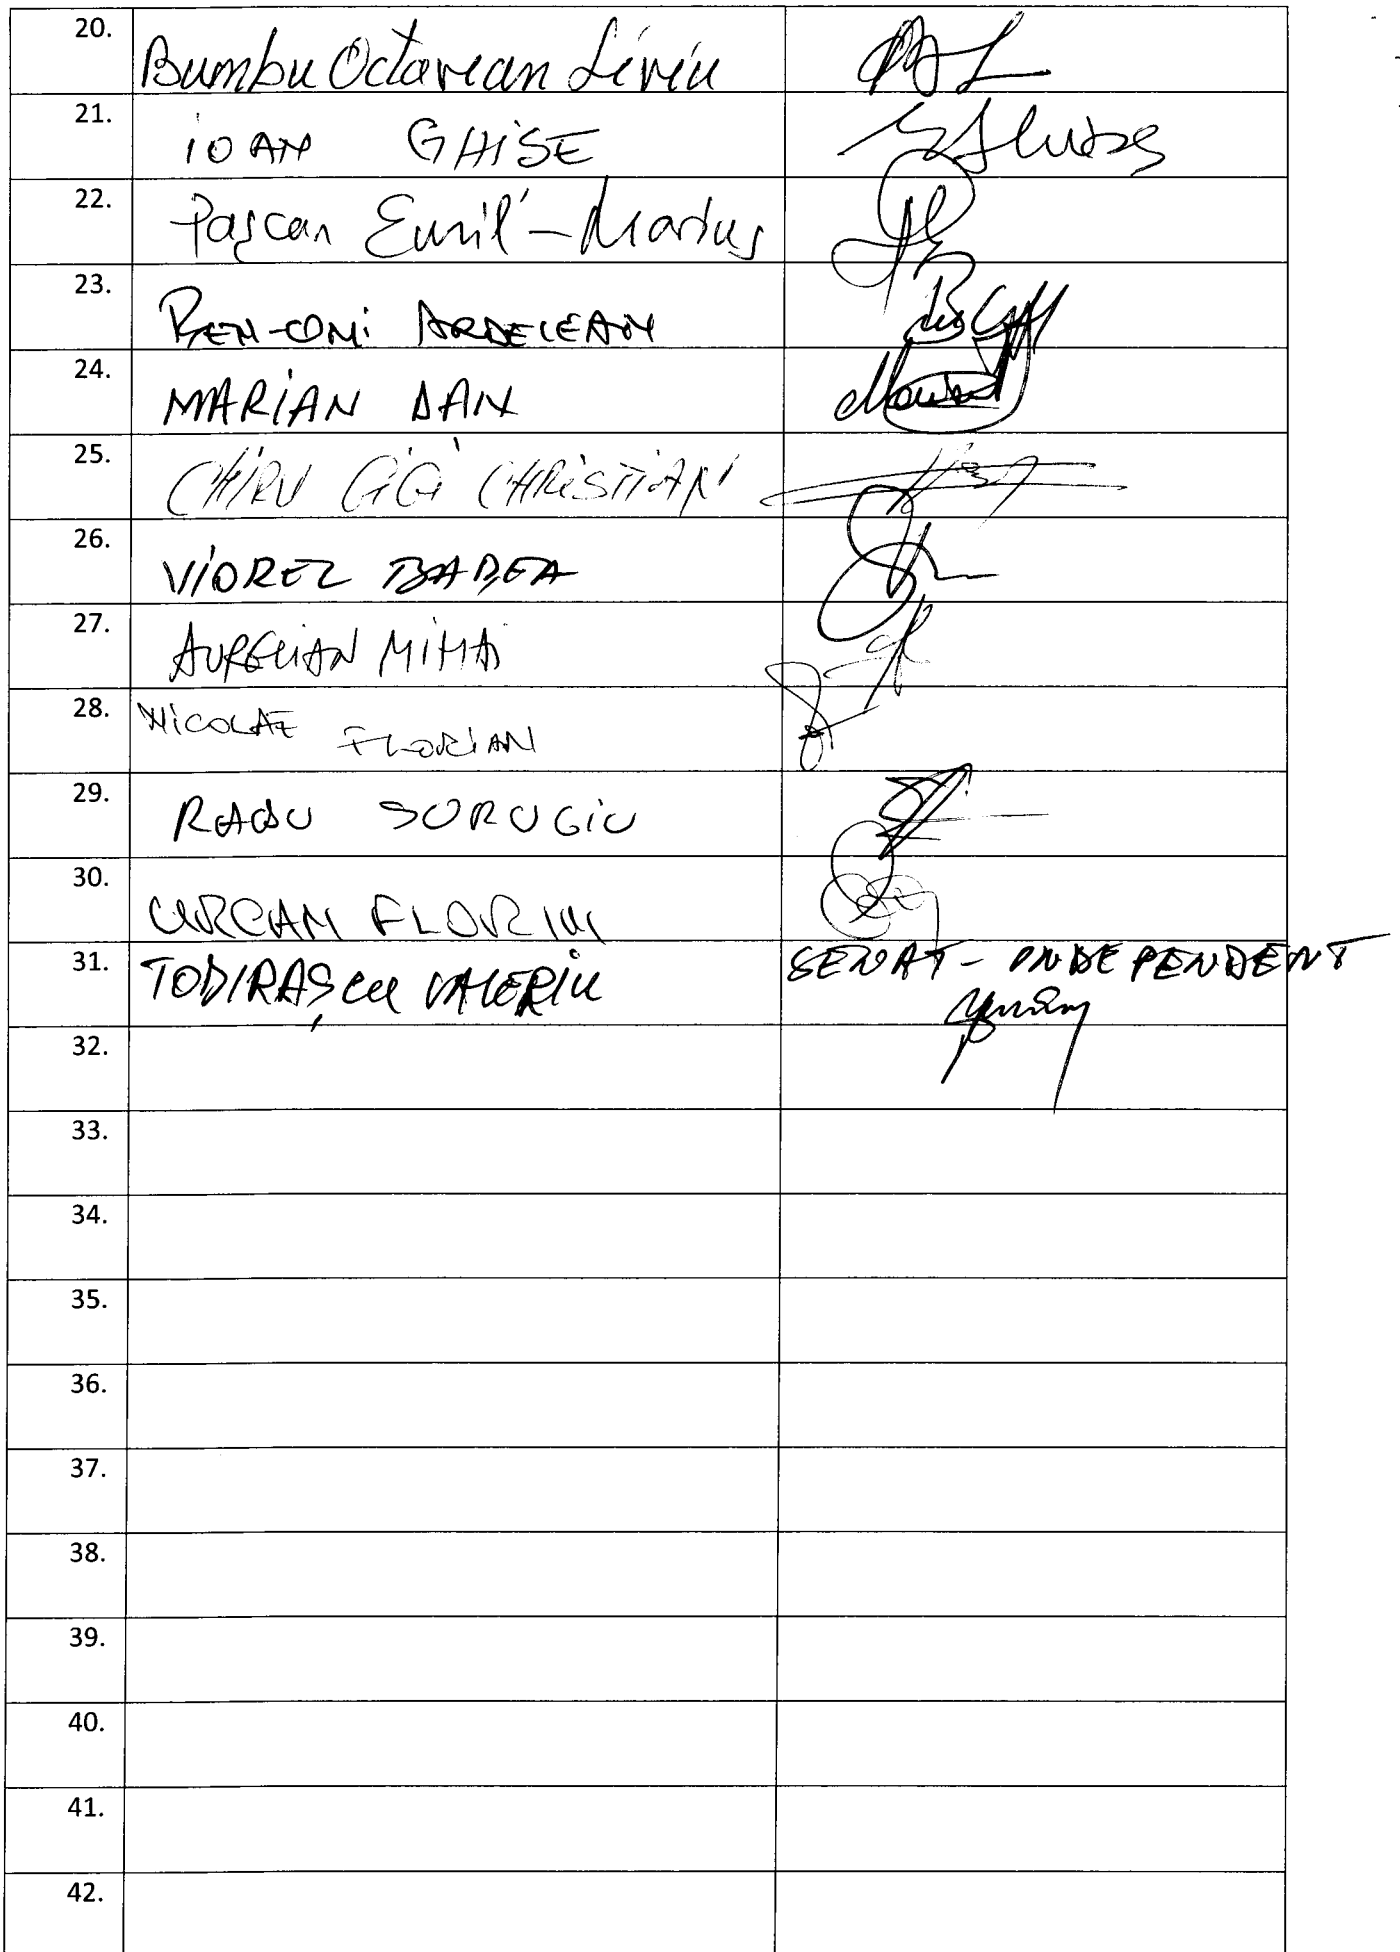 20. Bumbu Octavian Liviu
21. iOAN GHiSE
22. Paşcan Emil-Marius
23. BEN-ONi ARDELEAN
24. MARiAN DAN
25. CHiRU GiGi CHRiSTiAN
26. ViOREL BADEA
27. AURELiAN MiHAi
28. NiCOLAE FLORiAN
29. RADU SURUGiU
30. URCAN FLORIN
31. TODIRAŞCU VALERIU SENAT - INDEPENDENT
32.
33.
34.
35.
36.
37.
38.
39.
40.
41.
42.